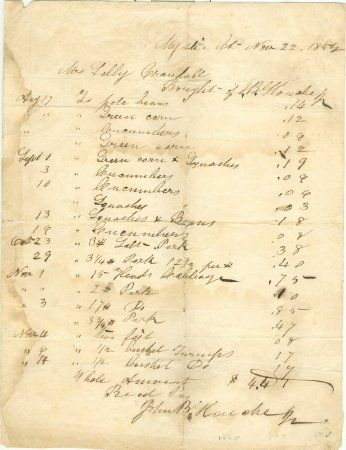 Mystic Ct Nov 22, 18
Mrs Sally Crandall
Bought of J B Houche Jr
Aug 17 To pole beans .14
" " " Green corn .12
" " " Cucumbers .09
" " " Green corn .12
Sept 1 " Green corn & Squashes .19
3 " Cucumbers .09
10 " Cucumbers .09
" Squashes .03
13 " Squashes & Beans .18
19 " Cucumbers .08
Oct 23 " 3# Salt Pork .38
29 " 3¼# Pork 12½ per # .40
Nov 1 " 15 Heads Cabbage .75
" " " Pork .10
" 3 " 17# Do .85
" " " Pork .47
Nov 4 " .08
" 6 " ½ bushel Turnips .17
" " ½ bushel Do .17
Whole Amount $
Recd Pay
John B Houche Jr